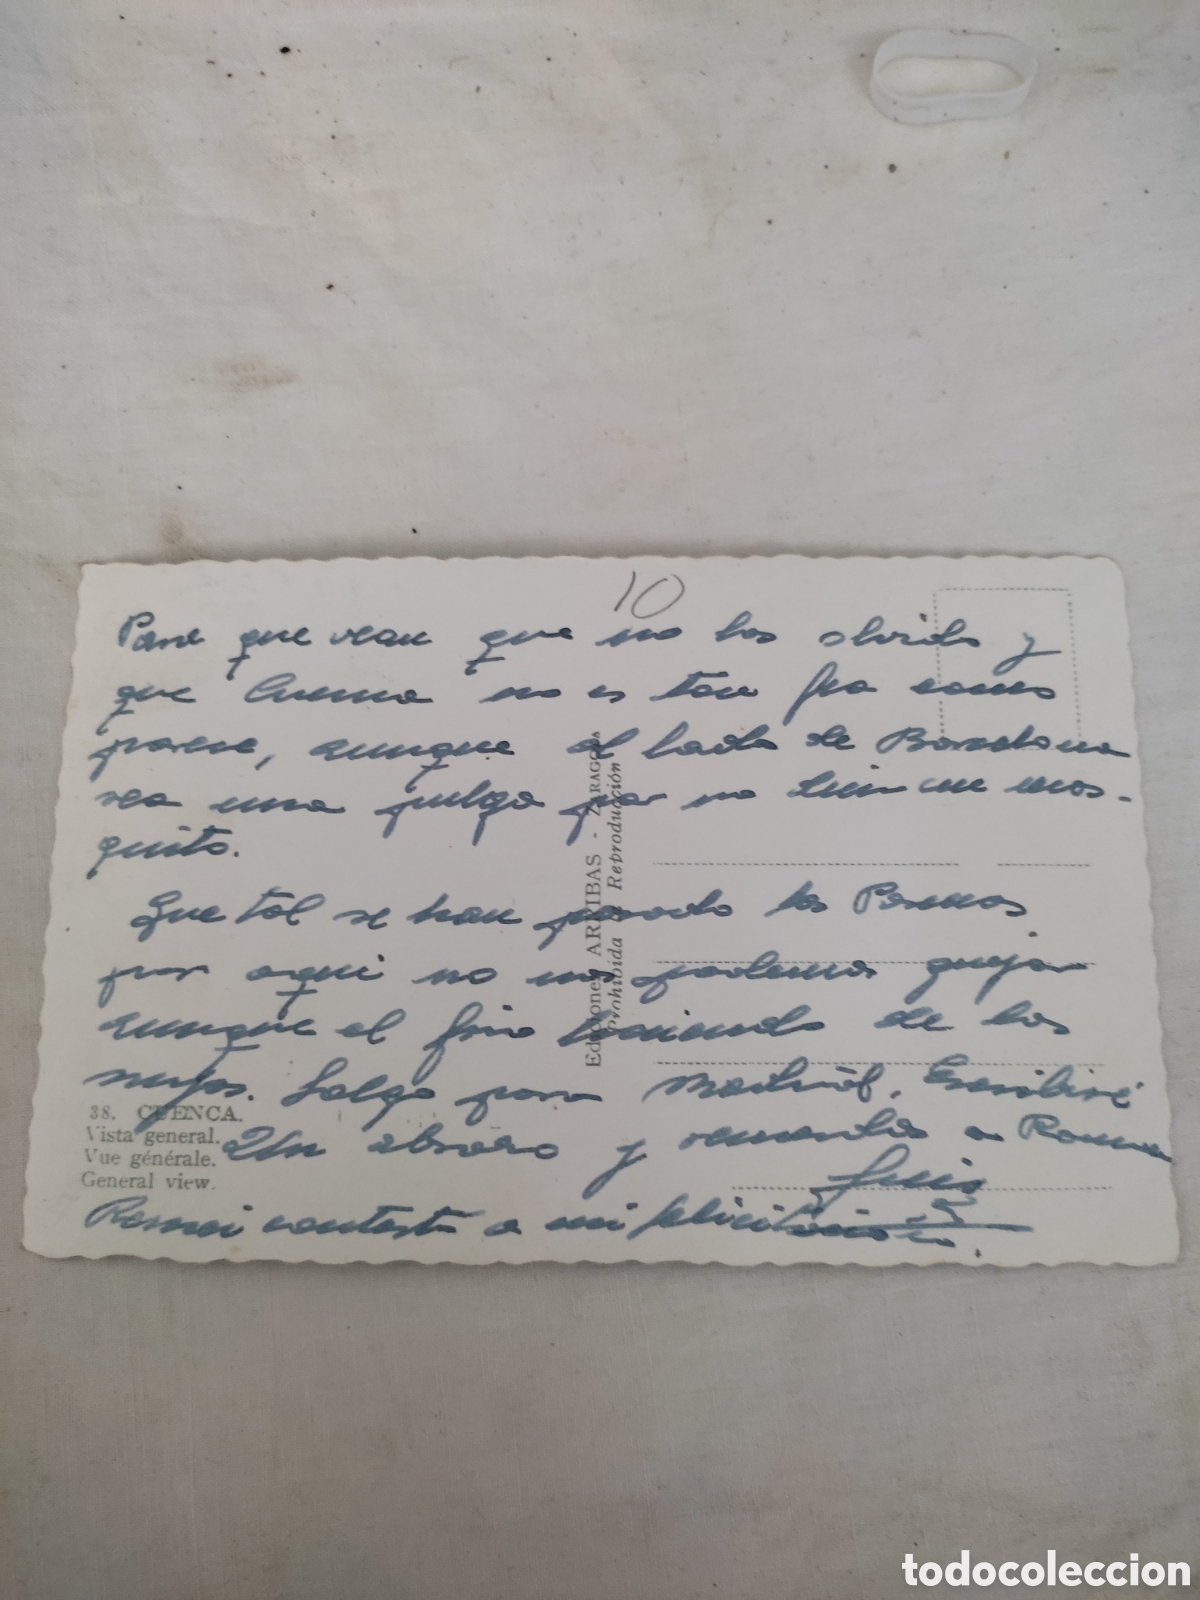 10
Para que vean que no los olvido y
que Cuenca no es tan fea como
parece, aunque al lado de Barcelona
sea una pulga por no un mos-
quito.
Que tal se han pasado las Pascuas
por aqui no nos podemos quejar
aunque el frio de los
Salgo para Madrid, Escribiré
Un abrazo y recuerdos a
Luis
contesta a mi felicitación.
38. CUENCA.
Vista general.
Vue générale.
General view.
Ediciones ARRIBAS - ZARAGOZA
Prohibida la Reproducción
todocoleccion